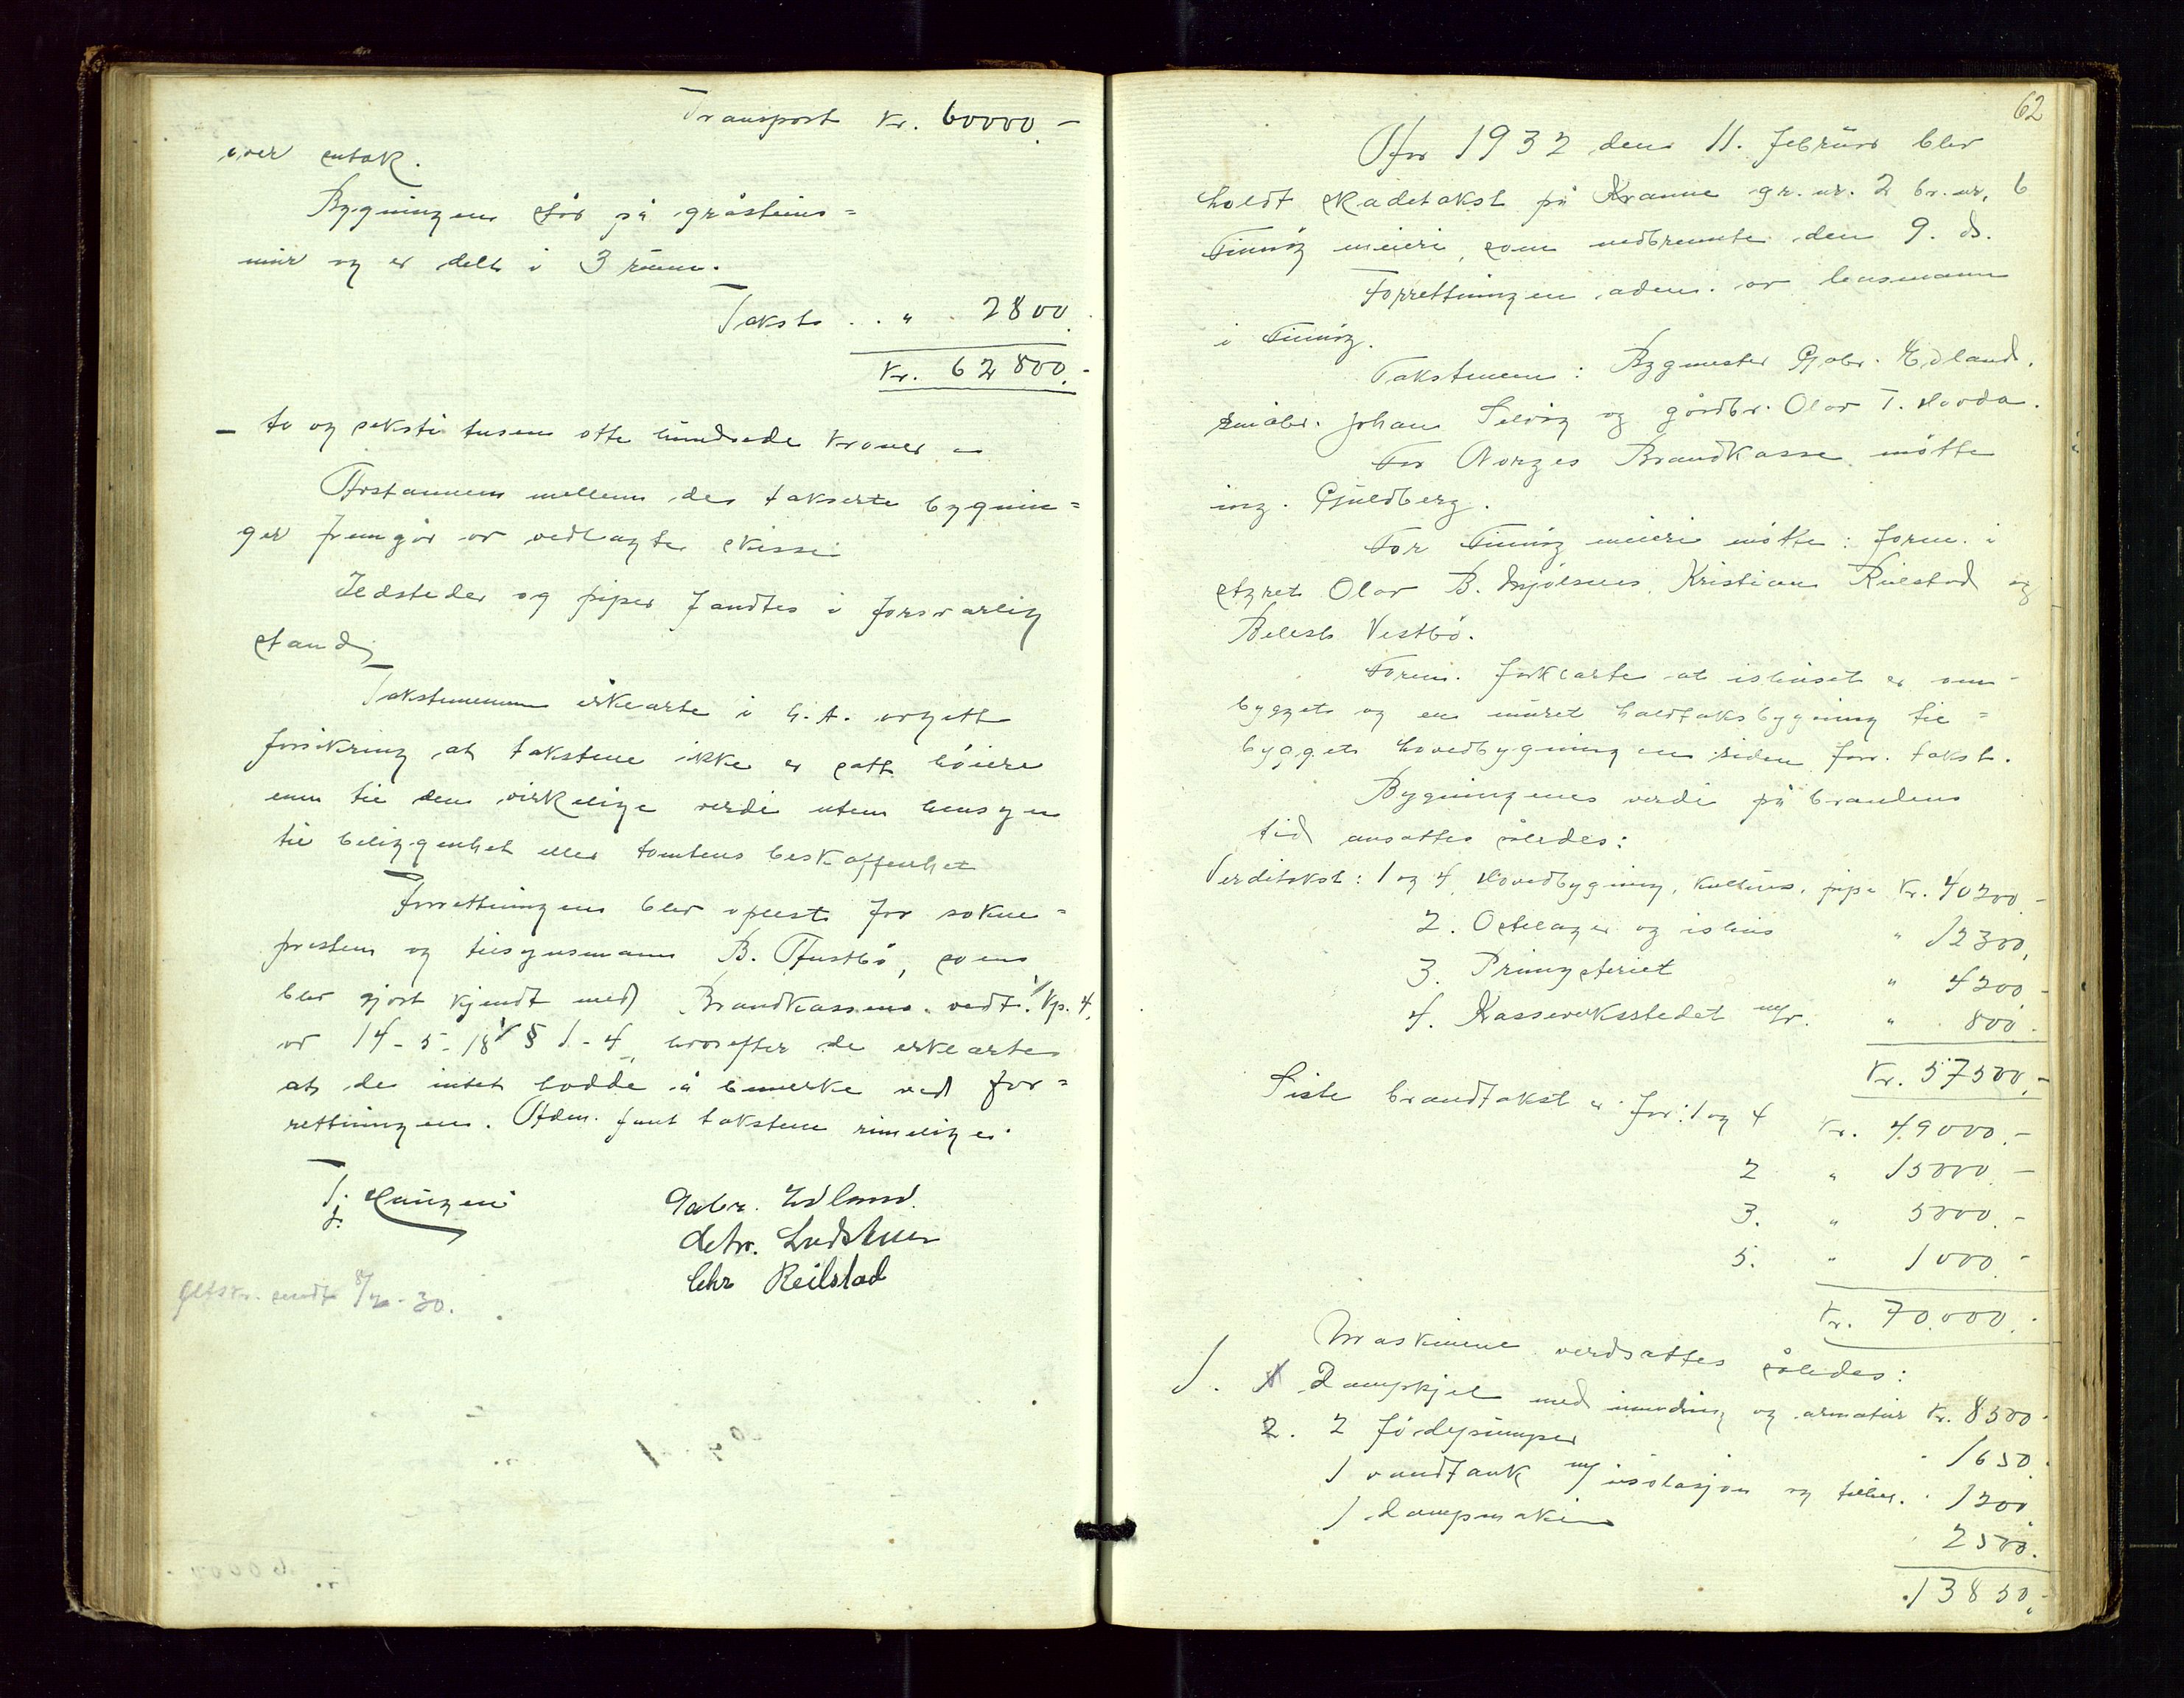 Transport kr. 60000.-
over entak.
Bygningen står på gråsteins=
mur og er delt i 3 rum.
Takst . . " . 2800.
Kr. 62800.-
- to og seksti tusen otte hundrede kroner -
Avstannen mellem de takserte bygnin=
ger fremgår av vedlagte skisse
Ildsteder og piper fandtes i forsvarlig
stand,
Takstmennene erklærte i h.t. avgitt
forsikring at takstene ikke er satt höiere
enn til den virkelige verdi uten hensyn
til beliggenhet eller tomtens beskaffenhet
Forrettningen blev oplest for sokne=
presten og tilsynsmann B. Austbö, som
blev gjort kjendt med Brandkassens vedt. kp. 4,
av 14-5-18 § 1-4, hvorefter de erklærte
at de intet hadde å bemerke ved for=
rettningen. Adm. fant takstene rimelige.
T. Haugen
Gabr. Edland.
Detv. Ludstuen
Chr Reilstad
Utskr. sendt 8/7-30.
62
År 1932 den 11. februar blev
holdt skadetakst på Kranne gr.nr. 2 br.nr. 6
Finnöy meieri, som nedbrennte den 9. ds.
Forrettningen adm. av lensmann
i Finnöy.
Takstmenn: Bygmester Gabr. Edland.
småbr. Johan Selvig og gårdbr. Olav T. Hovda.
For Norges Brandkasse mötte
ing. Guldberg.
For Finnöy meieri mötte: form. i
styret Olav B. Mjölsnes, Kristian Reilstad og
Vestbö.
Form. forklarte at ishuset er om-
bygget og en muret halvtaksbygning til=
bygget hovedbygningen siden forr. takst.
Bygningenes verdi på brandens
tid ansattes således:
Verditakst: 1 og 4. Hovedbygning, kullhus, pipe Kr. 40200.-
2. Ostelager og ishus " 12300.
3. Primysteriet " 4200.-
4. Kasseverkstedet m/v. " 800.-
Kr. 57500.-
Siste brandtakst er for: 1 og 4 Kr. 49000.-
2 " 15000.-
3. " 5000.-
5. " 1000.-
Kr. 70.000.-
Maskinene verdsattes således:
1. 1 Dampkjel med innmuring og armatur Kr. 8500.-
2. 2 födepumper " 1650.
1 vandtank m/ isolasjon og tilbeh. " 1200.
1 Dampmaskin 2500.
13850.-